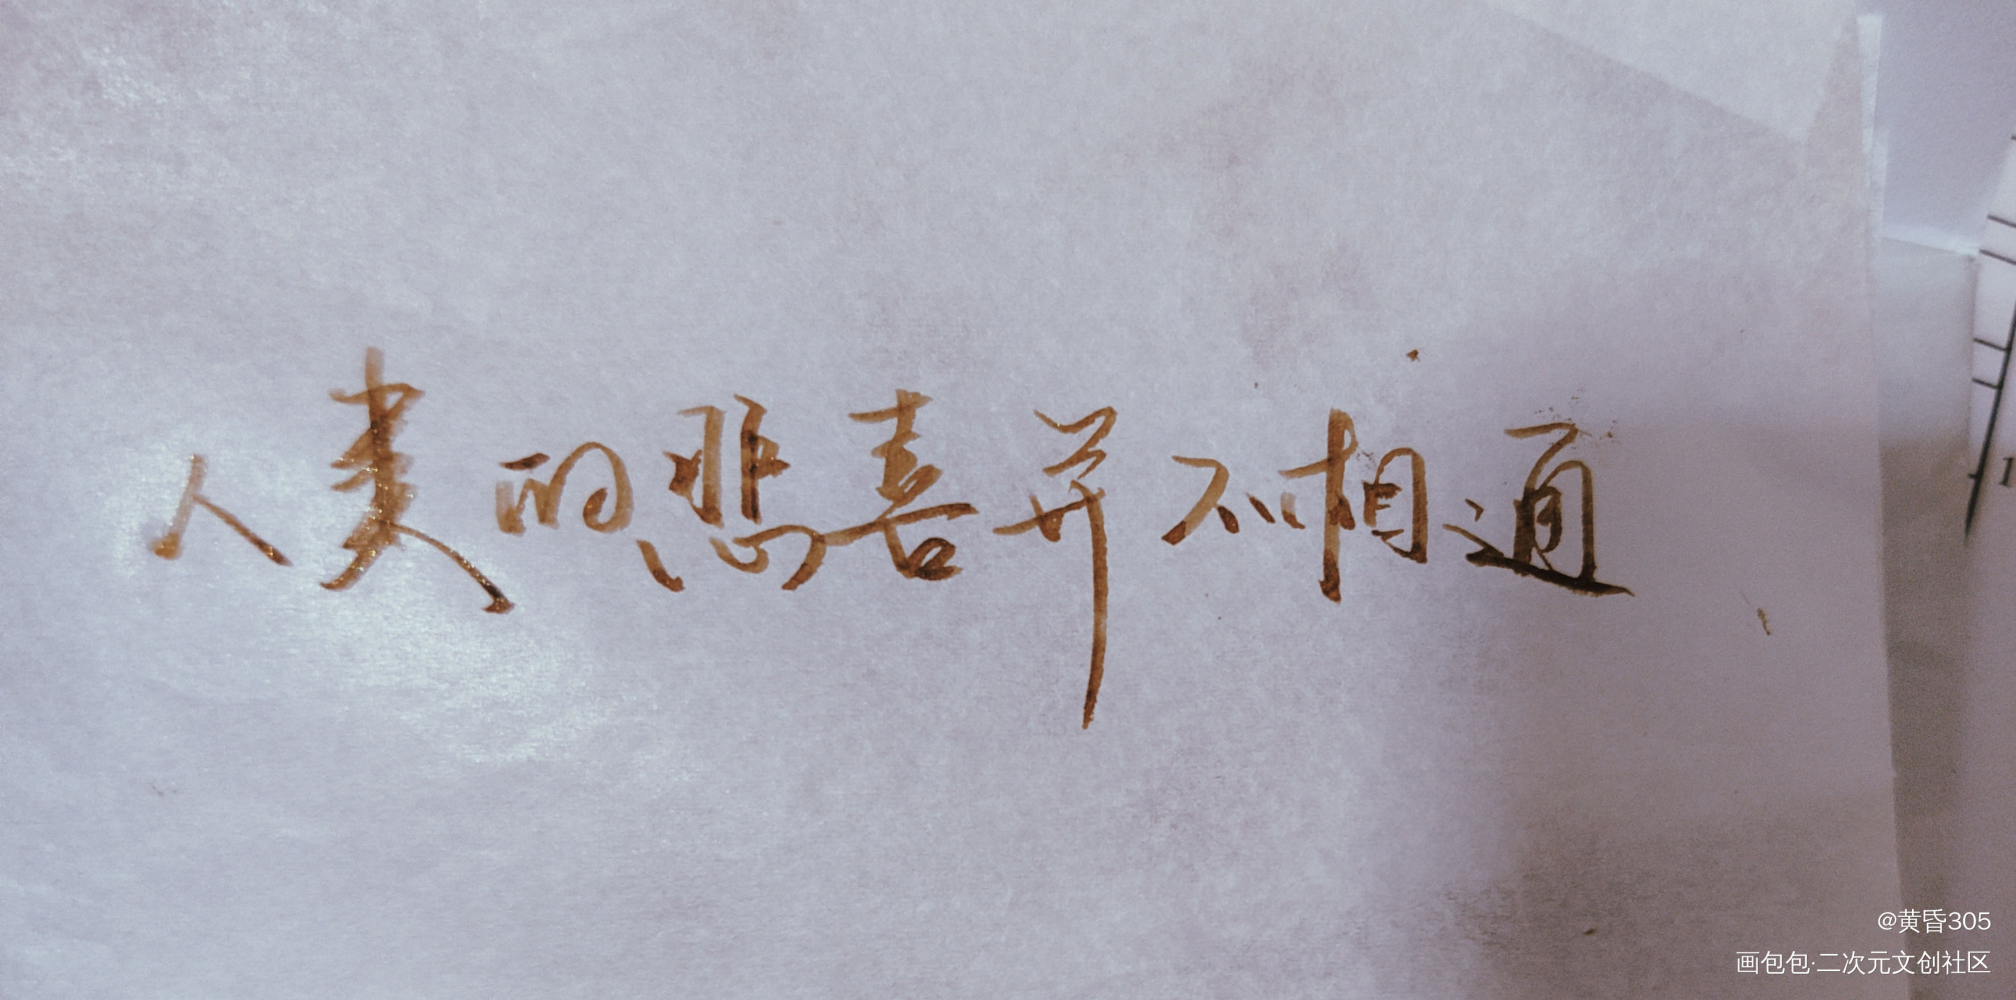 人类的悲喜并不相通
@黄昏305
画包包·二次元文创社区